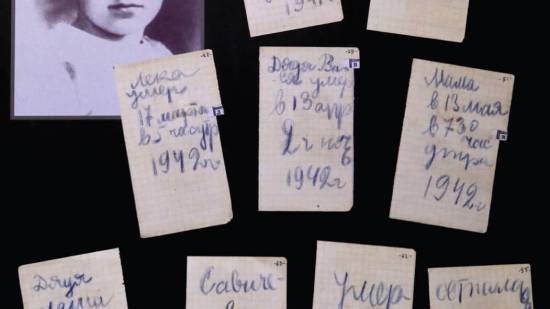 1942 г
Лека
умер
17 марта
в 5 час утр
1942 г
Дядя Ва
ся умер
в 13 апр
2 ч ноч
1942 г
Мама
в 13 мая
в 7 30
час
утра
1942 г
Дядя
Савиче-
умер
остилась